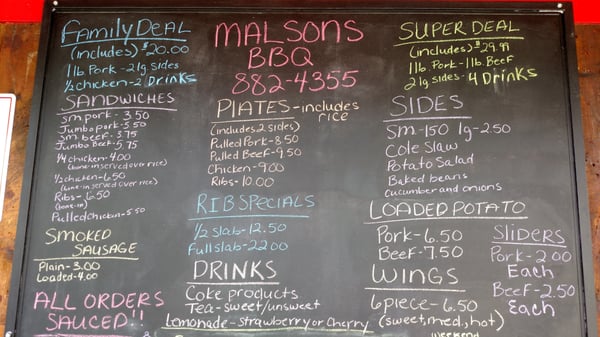 Family Deal
(includes) $20.00
1lb Pork - 2 lg sides
1/2 chicken - 2 Drinks
SANDWICHES
sm. pork - 3.50
Jumbo pork - 5.50
sm. beef - 3.75
Jumbo Beef - 5.75
1/4 chicken - 4.00
(bone-in served over rice)
1/2 chicken - 6.50
(bone-in served over rice)
Ribs - 6.50
(bone-in)
Pulled Chicken - 5.50
SMOKED
SAUSAGE
Plain - 3.00
Loaded - 4.00
ALL ORDERS
SAUCED!!
MALSONS
BBQ
882-4355
PLATES - includes
rice
(includes 2 sides)
Pulled Pork - 8.50
Pulled Beef - 9.50
Chicken - 9.00
Ribs - 10.00
RIB SPECIALS
1/2 slab - 12.50
Full slab - 22.00
DRINKS
Coke products
Tea - sweet/unsweet
Lemonade - strawberry or Cherry
SUPER DEAL
(includes) $29.99
1lb Pork - 1lb Beef
2 lg sides - 4 Drinks
SIDES
sm - 1.50 lg - 2.50
Cole slaw
Potato Salad
Baked beans
cucumber and onions
LOADED POTATO
Pork - 6.50
Beef - 7.50
SLIDERS
Pork - 2.00
Each
Beef - 2.50
Each
WINGS
6 piece - 6.50
(sweet, med, hot)
weekend